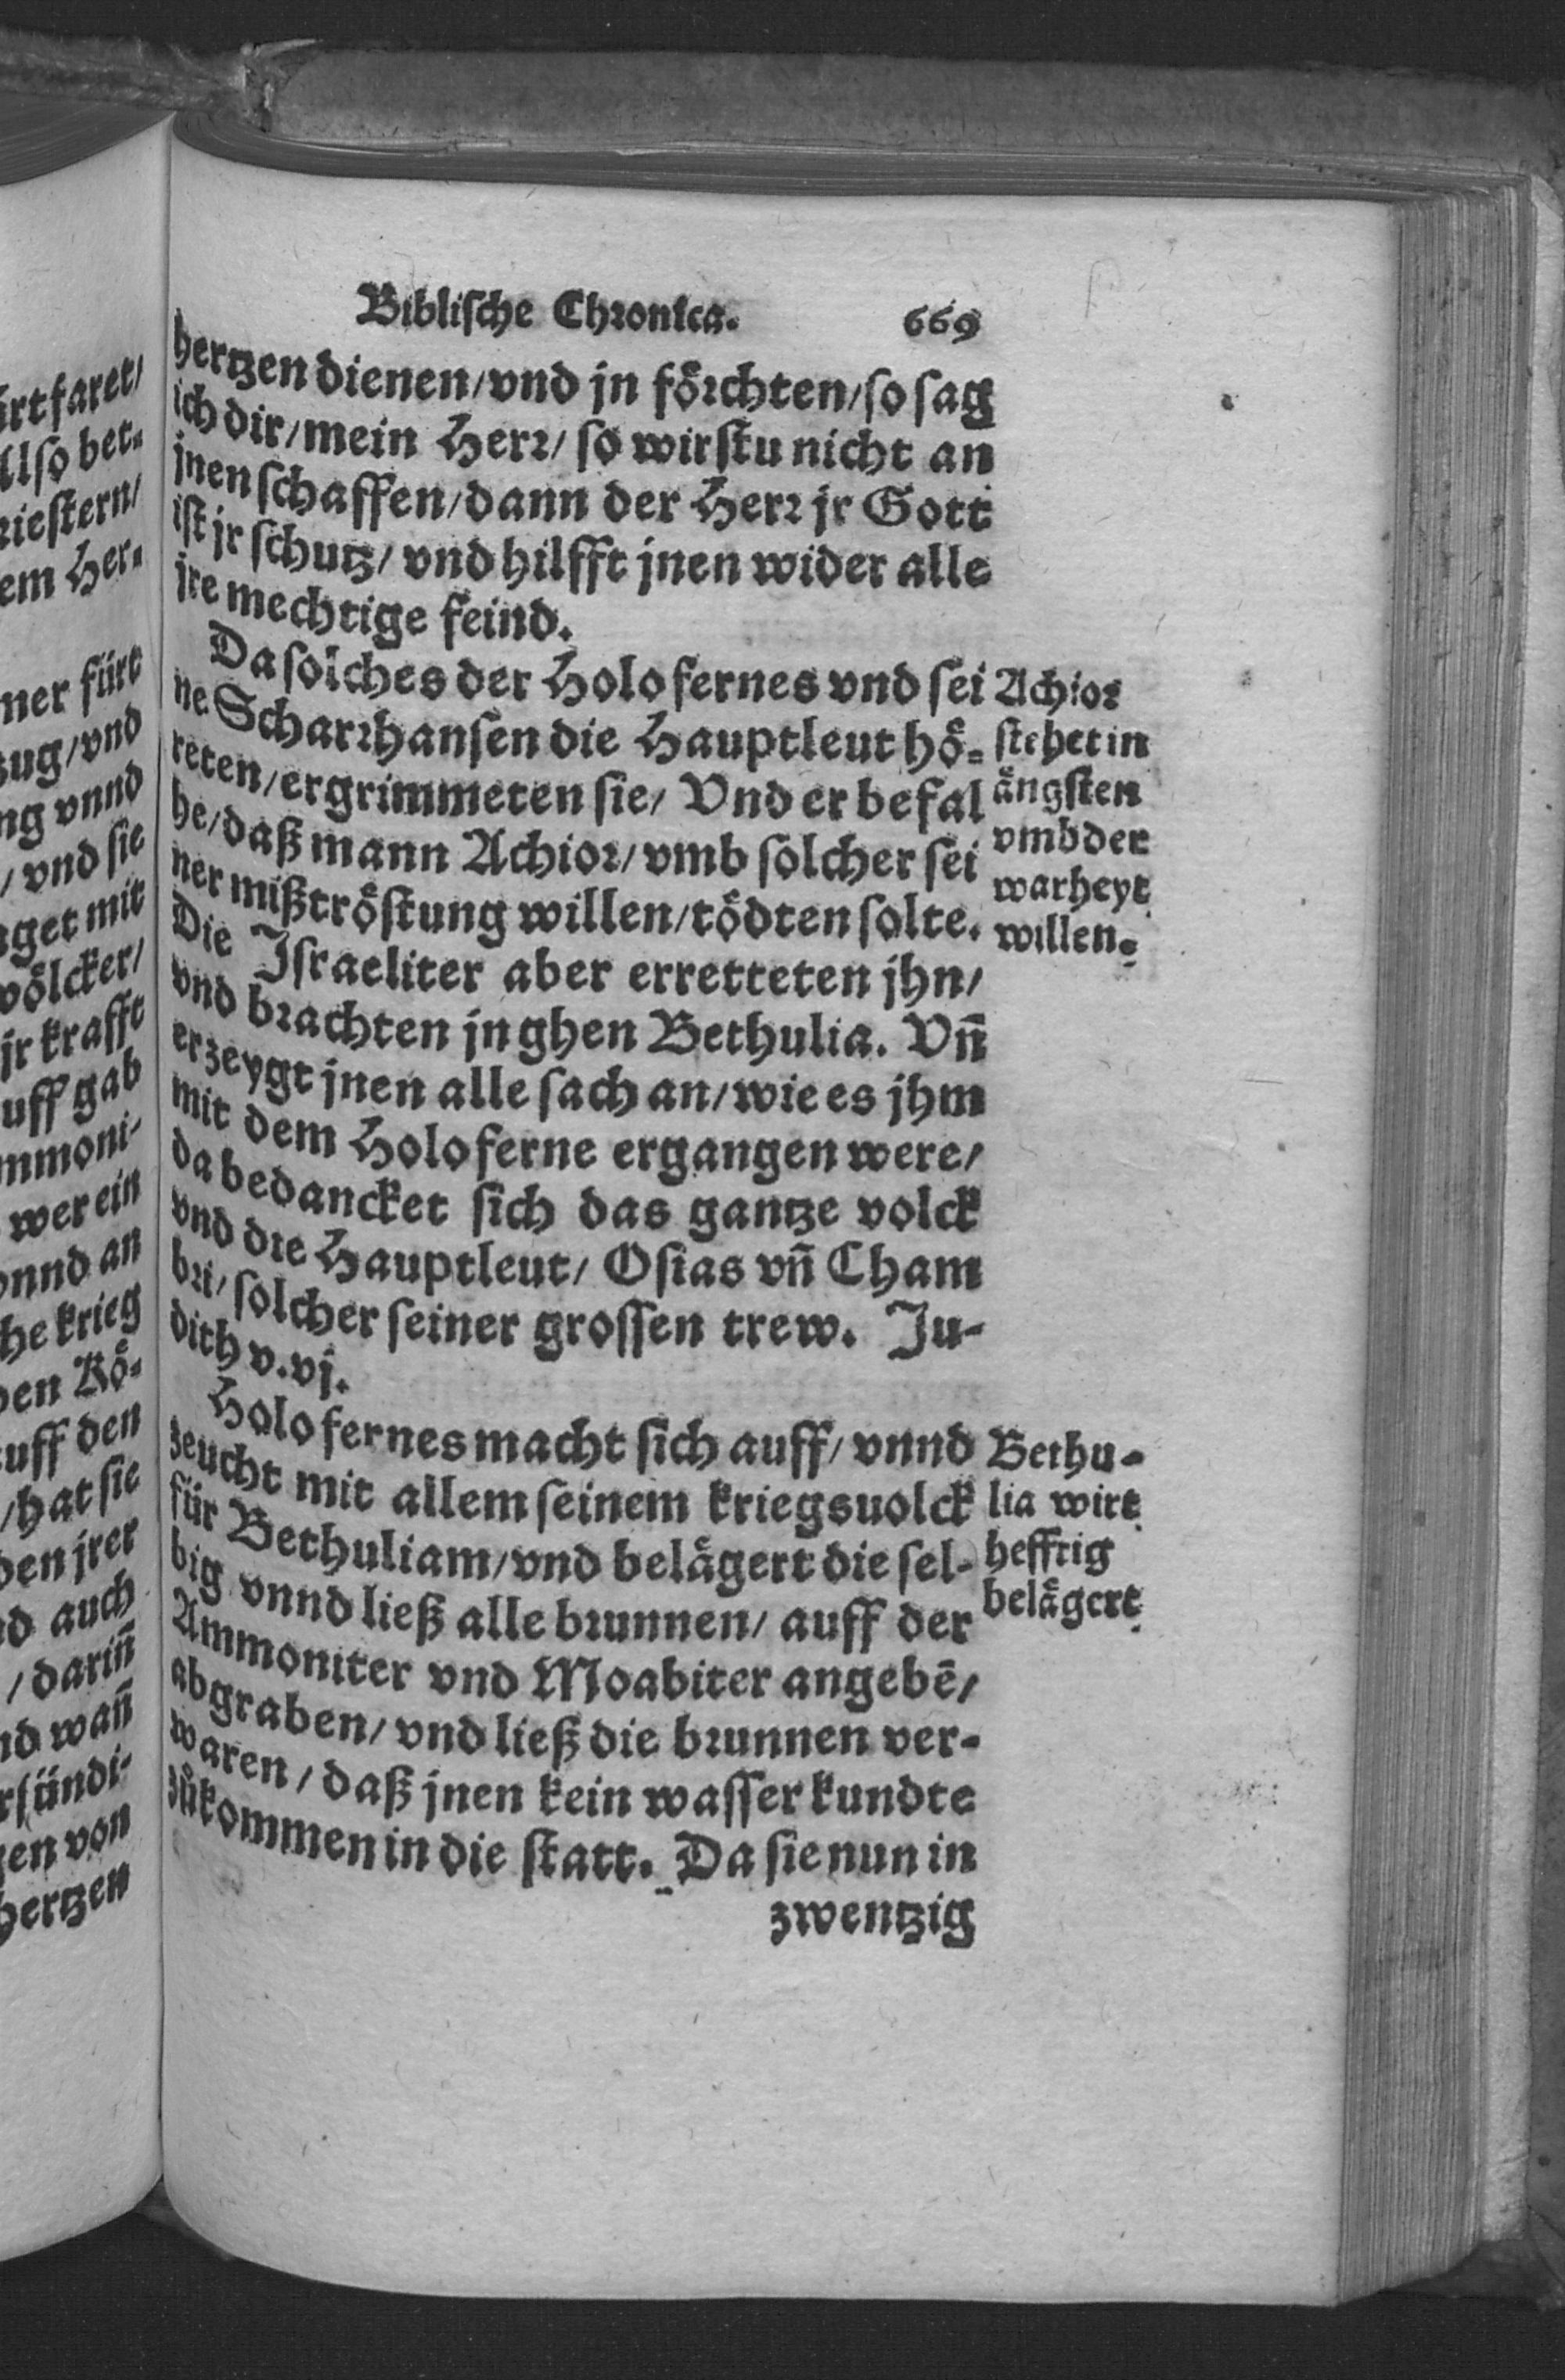 Biblische Chronica. 669
hertzen dienen/vnd jn förchten/so sag
ich dir/mein Herr/ so wirstu nicht an
jnen schaffen/dann der Herr jr Gott
ist jr schutz/ vnd hilfft jnen wider alle
jre mechtige feind.
Da solches der Holofernes vnd sei
ne Scharrhansen die Hauptleut hö-
reten/ergrimmeten sie/ Vnd er befal
he/daß mann Achior/vmb solcher sei
ner mißtröstung willen/tödten solte.
Die Israeliter aber erretteten jhn/
vnd brachten jn ghen Bethulia. Vñ
erzeygt jnen alle sach an/wie es jhm
mit dem Holoferne ergangen were/
da bedancket sich das gantze volck
vnd die Hauptleut/ Osias vñ Cham
bri/ solcher seiner grossen trew. Ju-
dith v.vj.
Achior
stehet in
ängsten
vmb der
warheyt
willen.
Holofernes macht sich auff/ vnnd
zeucht mit allem seinem kriegsuolck
für Bethuliam/vnd belägert die sel-
big vnnd ließ alle brunnen/ auff der
Ammoniter vnd Moabiter angebē/
abgraben/ vnd ließ die brunnen ver-
waren/ daß jnen kein wasser kundte
zůkommen in die statt. Da sie nun in
zwentzig
Bethu-
lia wirt
hefftig
belägert